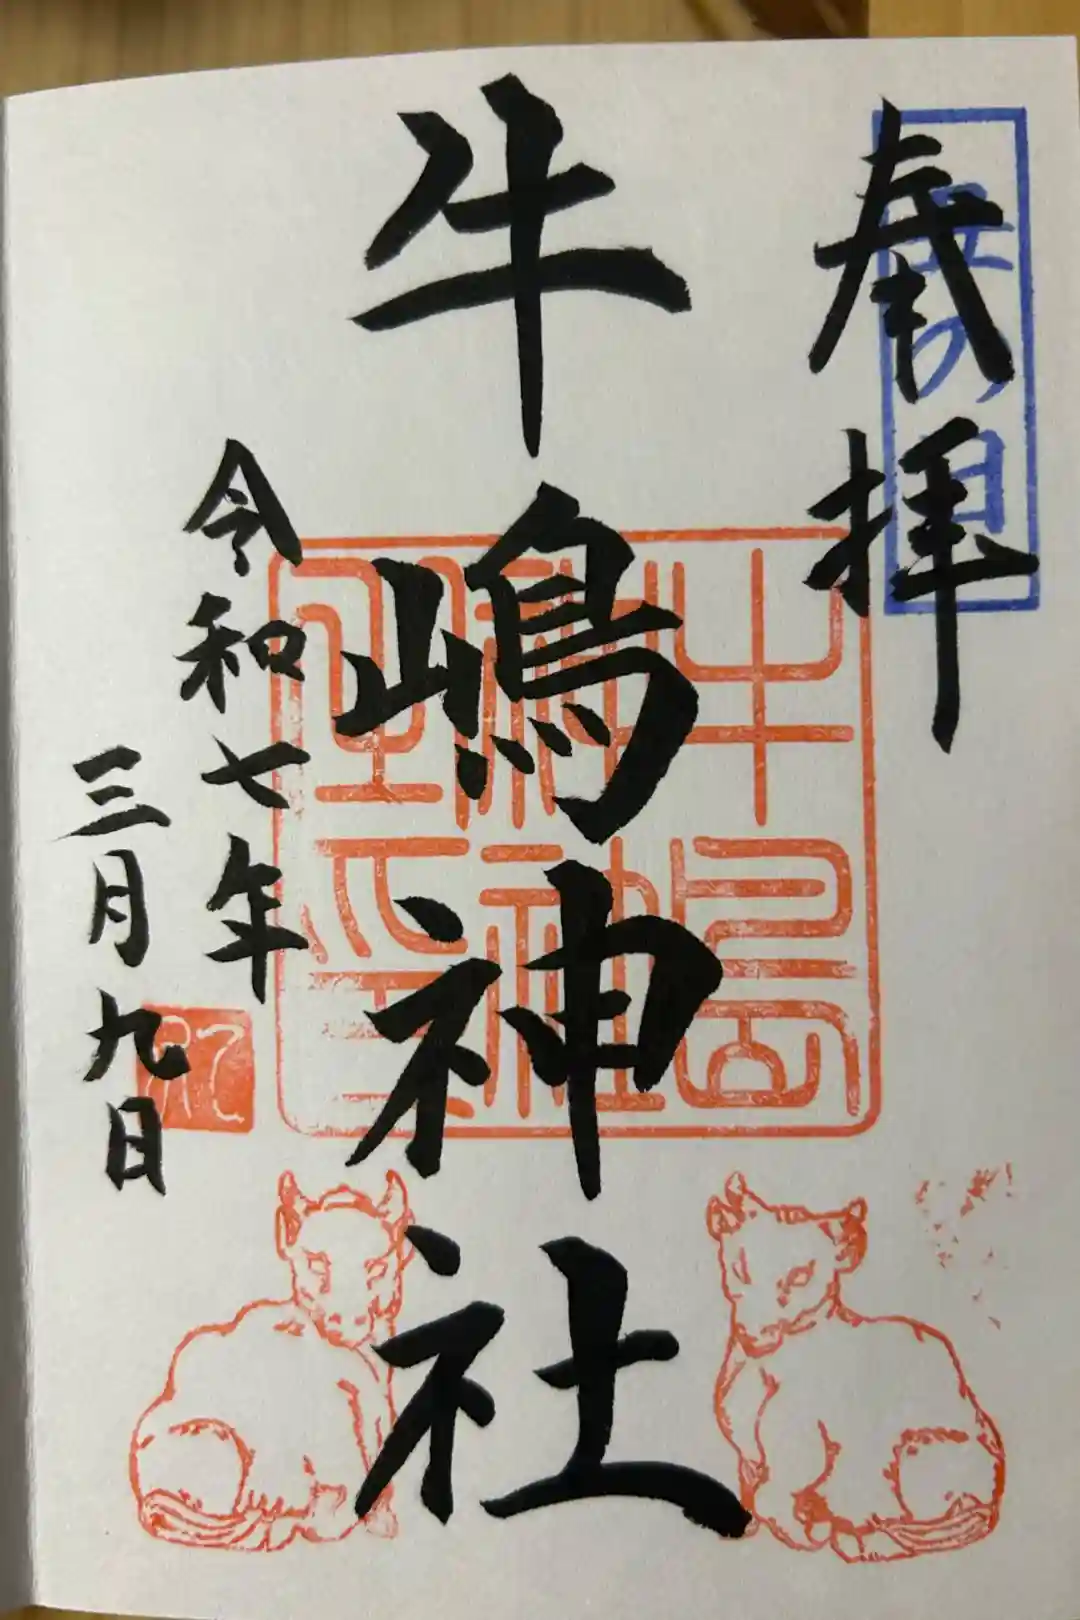 奉拝
丑の日
牛嶋神社
牛嶋
神社
令和七年
三月九日